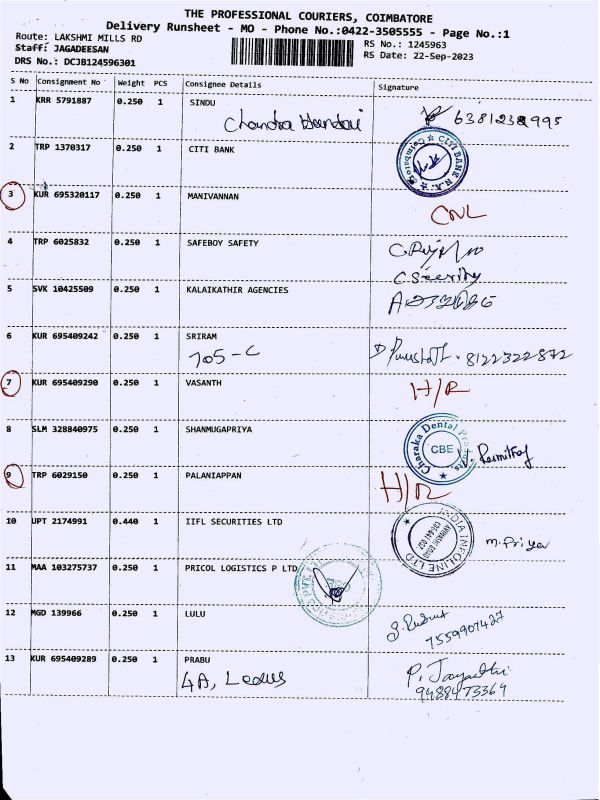 THE PROFESSIONAL COURIERS, COIMBATORE
Delivery Runsheet - MO - Phone No.:0422-3505555 - Page No.:1
Route: LAKSHMI MILLS RD
Staff: JAGADEESAN
DRS No.: DCJB124596301
RS No.: 1245963
RS Date: 22-Sep-2023
S No Consignment No Weight PCS Consignee Details Signature
1 KRR 5791887 0.250 1 SINDU
Chandra 6381232995
2 TRP 1370317 0.250 1 CITI BANK
CITI BANK N.A. Coimbatore
3 KUR 695320117 0.250 1 MANIVANNAN
CNL
4 TRP 6025832 0.250 1 SAFEBOY SAFETY
5 SVK 10425509 0.250 1 KALAIKATHIR AGENCIES
6 KUR 695409242 0.250 1 SRIRAM
705-C 8122322872
7 KUR 695409290 0.250 1 VASANTH
H/R
8 SLM 328840975 0.250 1 SHANMUGAPRIYA
Charaka Dental
CBE
9 TRP 6029150 0.250 1 PALANIAPPAN
H/R
10 UPT 2174991 0.440 1 IIFL SECURITIES LTD
INDIA INFOLINE LTD
m. Priya
11 MAA 103275737 0.250 1 PRICOL LOGISTICS P LTD
12 MGD 139966 0.250 1 LULU
7559907427
13 KUR 695409289 0.250 1 PRABU
4A, P. Jayanthi
9488473364